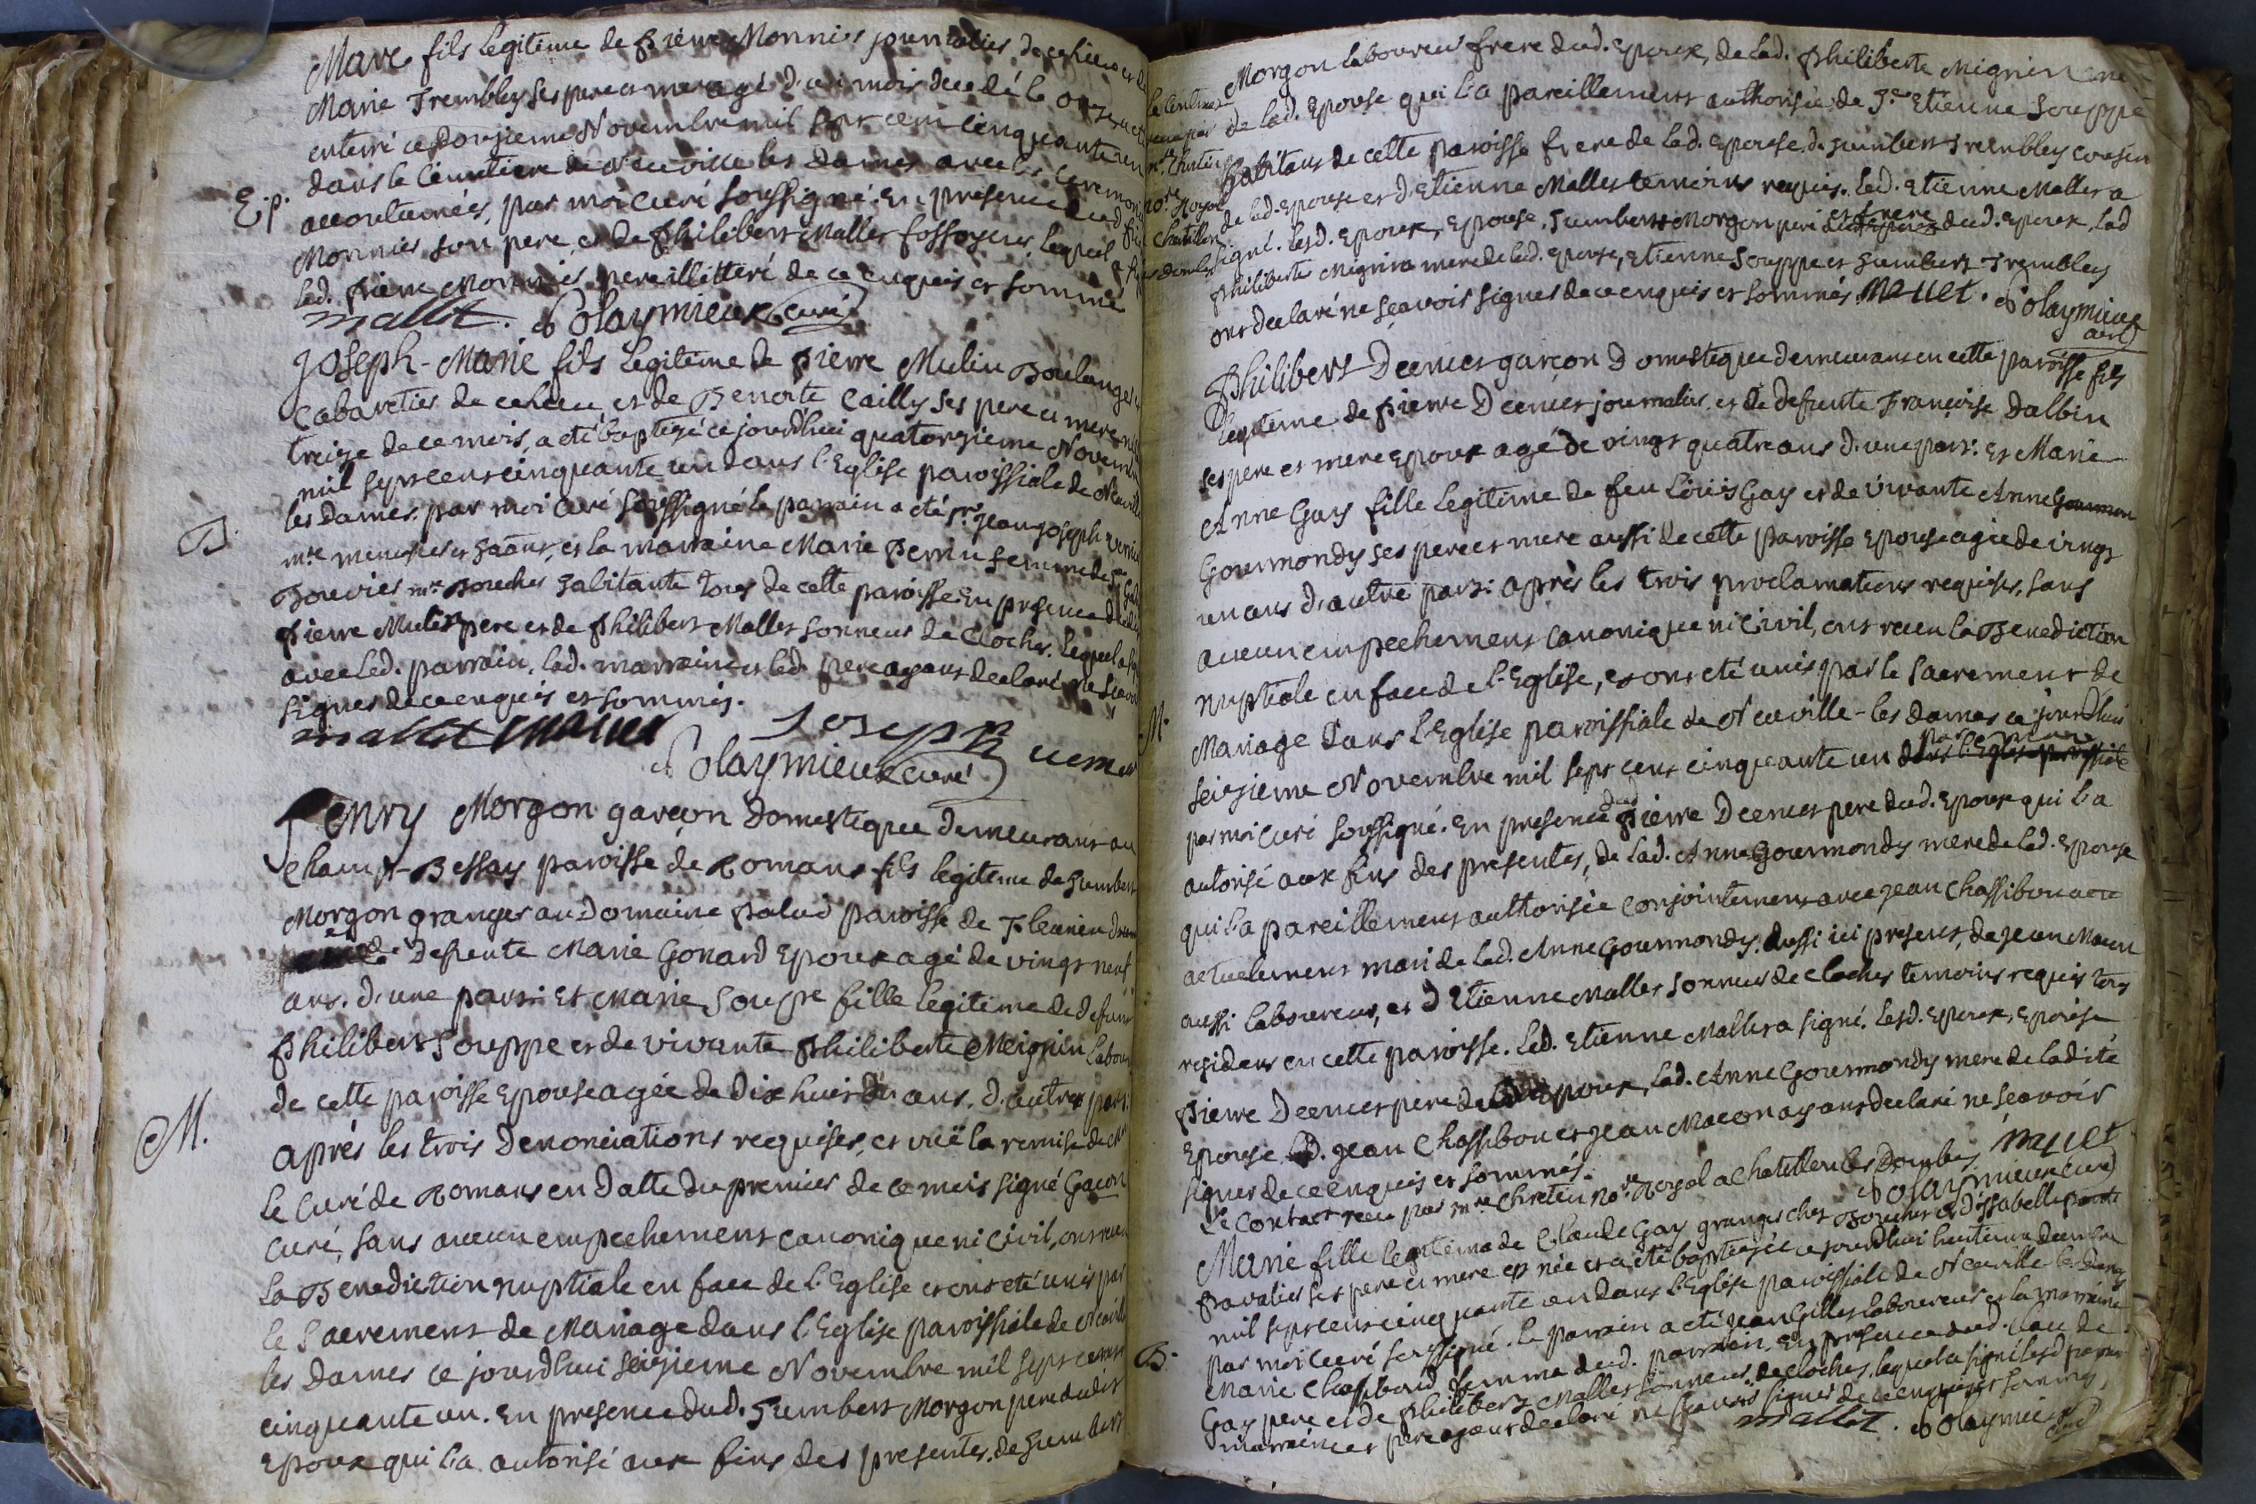 Marc fils legitime de pierre Monnier journalier de ce lieu et de
Marie Trembley ses pere et mere agé d'un mois decedé le onze a eté
enterré ce Douzieme Novembre mil sept cent cinquante un
dans le Cimetiere de Neuville les Dames avec les ceremonies
E.p.
accoutumées, par moi curé soussigné. En presence dud. pierre
Monnier son pere, et de philibert Mallet fossoyeur, lequel a signé
led. pierre Monnier pere illitteré de ce enquis et sommé
mallet. Polaymieux curé
Joseph-Marie fils legitime de pierre Mulin Boulanger et
Cabaretier de ce lieu, et de Benoite Cailly ses pere et mere né le
treize de ce mois, a eté baptizé ce jourdhui quatorzieme Novembre
mil sept cens cinquante un dans l'Eglise paroissiale de Neuville
les Dames. par moi curé soussigné le parrain a eté sr. jean joseph
B.
mre menuisier et la marraine Marie perrin femme de
Bouvier mre Boucher habitants tous de cette paroisse. En presence dudit
pierre Mulin pere et de philibert Mallet sonneur de Cloches. lequel a signé
avec led. parrain, lad. marraine et led. pere ayans declaré ne sçavoir
signer de ce enquis et sommés.
mallet Joseph
Polaymieux curé
Henry Morgon garçon Domestique demeurant au
Champ-Bessay paroisse de Romans fils legitime de humbert
Morgon granger au Domaine palud paroisse de
et de defunte Marie Gonard Epoux agé de vingt neuf
ans. d'une part: Et Marie Souppe fille legitime de defunt
philibert Souppe et de vivante philiberte Meignin
de cette paroisse Epouse agée de Dix huit ans. d'autre part:
M.
après les trois Denonciations requises, et vuë la remise de Mr
le Curé de Romans en datte du premier de ce mois signé Gacon
Curé, sans aucun empechement canonique ni Civil, ont recu
la Benediction nuptiale en face de l'Eglise et ont eté unis par
le Sacrement de Mariage dans l'Eglise paroissiale de Neuville
les Dames ce jourdhui seizieme Novembre mil sept cens
cinquante un. En presence dud. humbert Morgon pere dudit
Epoux qui l'a autorisé aux fins des presentes. de humbert
Morgon laboureur frere dud. Epoux, de lad. philiberte Mignin mere
de lad. Epouse qui l'a pareillement authorisée de Etienne Souppe
habitans de cette paroisse frere de lad. Epouse, d. humbert Trembley cousin
de lad. Epouse et d'Etienne Mallet temoins requis. led. Etienne Mallet a
signé. lesd. Epoux, Epouse, humbert Morgon pere et frere dud. Epoux, lad
philiberte Mignin mere de lad. Epouse, Etienne Souppe et humbert Trembley
ont declaré ne sçavoir signer de ce enquis et sommés. Mallet. Polaymieux
curé
philibert Decuer garçon Domestique demeurant en cette paroisse fils
legitime de pierre Decuer journalier et de defunte Françoise Dalbin
ses pere et mere Epoux agé de vingt quatre ans d'une part: Et Marie
Anne Gay fille legitime de feu Louis Gay et de vivante Anne
Gourmondy ses pere et mere aussi de cette paroisse Epouse agée de vingt
un ans d'autre part: après les trois proclamations requises, sans
aucun empechement canonique ni Civil, ont recu la Benediction
nuptiale en face de l'Eglise, et ont eté unis par le Sacrement de
M.
Mariage dans l'Eglise paroissiale de Neuville-les Dames ce jourdhui
seizieme Novembre mil sept cens cinquante un dans l'Eglise paroissiale
par moi curé soussigné. En presence dud pierre Decuer pere dud. Epoux qui l'a
autorisé aux fins des presentes, de lad. Anne Gourmondy mere de lad. Epouse
qui l'a pareillement authorisée conjointement avec jean Chassibou
actuelement mari de lad. Anne Gourmondy. aussi ici present, de jean Macon
aussi laboureur, et d'Etienne Mallet sonneur de cloches temoins requis tous
residens en cette paroisse. led. Etienne Mallet a signé. lesd. Epoux, Epouse
pierre Decuer pere dud. Epoux, lad. Anne Gourmondy mere de ladite
Epouse led. jean Chassibou et jean Macon ayans declaré ne sçavoir
signer de ce enquis et sommés. Mallet
le Contract recu par mre Chretien nore Royal a Chatillon les Dombes
Polaymieux curé
Marie fille legitime de Claude Gay granger chez Bouvier et d'issabelle
ses pere et mere est née et a eté baptizée ce jourdhui
mil sept cens cinquante un dans l'Eglise paroissiale de Neuville les Dames
B.
par moi curé soussigné. le parrain a eté jean Gillet laboureur et la marraine
Marie Chassiboud femme dud. parrain. En presence dud. Claude
Gay pere et de philibert Mallet sonneur de cloches, lequel a signé lesd. parrain
marraine et pere ayans declaré ne sçavoir signer de ce enquis et sommés
mallet. Polaymieux curé